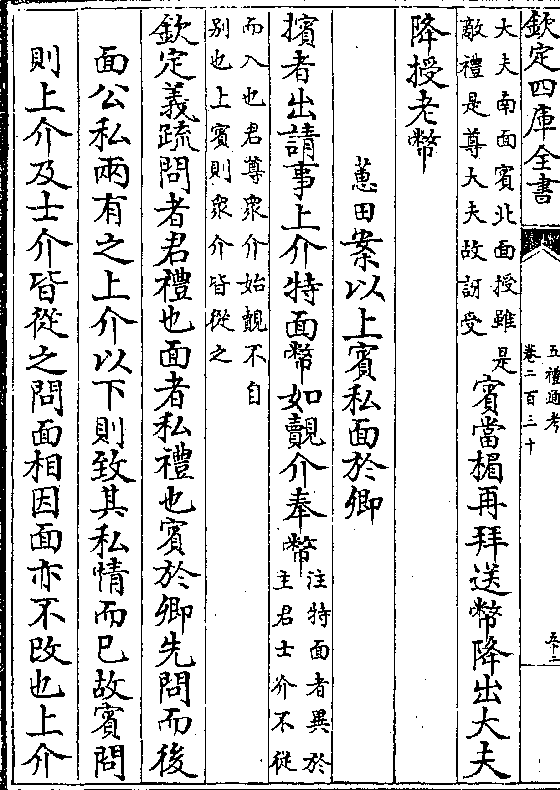 欽定四庫全書
五禮通考
卷二百三十
大夫南面賓北面授雖是
敵禮是尊大夫故訝受
賓當楣再拜送幣降出大夫
降授老幣
蕙田案以上賓私面於卿
擯者出請事上介特面幣如覿介奉幣
注特面者異於
主君士介不從
而入也君尊衆介始覿不自
别也上賓則衆介皆從之
欽定義疏問者君禮也面者私禮也賓於卿先問而後
面公私兩有之上介以下則致其私情而已故賓問
則上介及士介皆從之問面相因面亦不改也上介